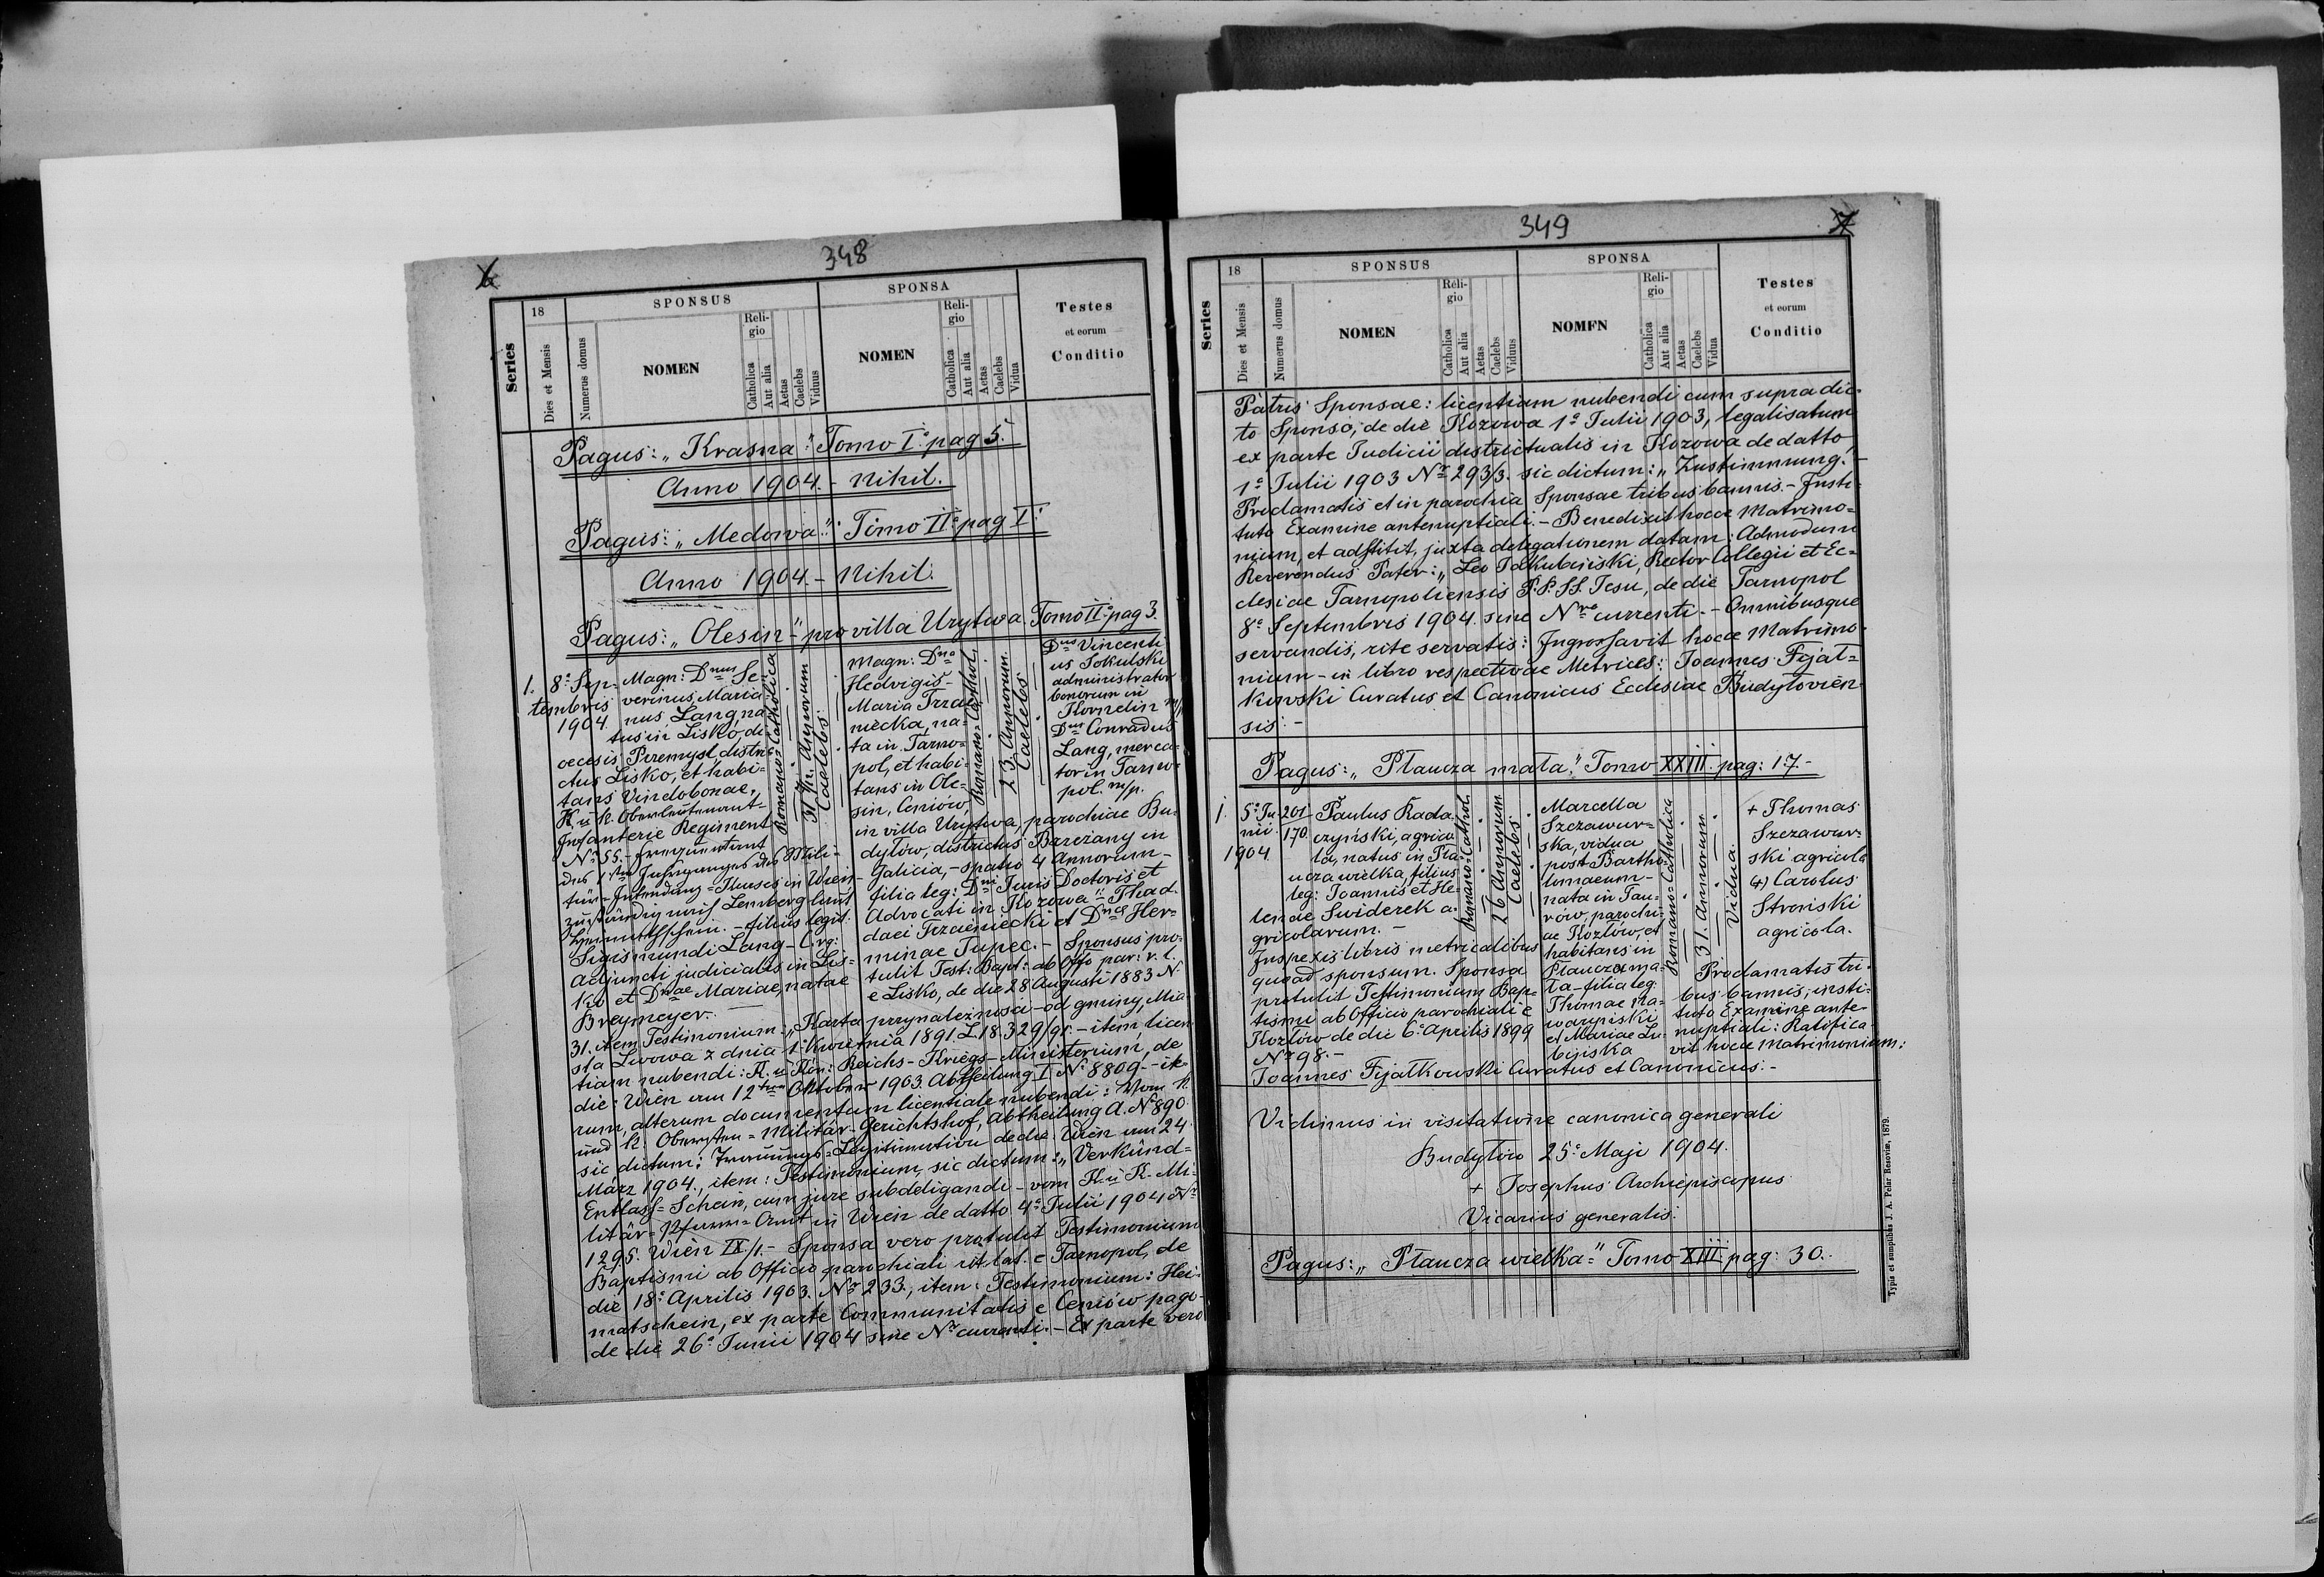 348
6
Series
18
Dies et Mensis
Numerus domus
SPONSUS
NOMEN
Reli-
gio
Catholica
Aut alia
Aetas
Caelebs
Viduus
SPONSA
NOMEN
Reli-
gio
Catholica
Aut alia
Aetas
Caelebs
Vidua
Testes
et eorum
Conditio
Pagus: „Krasna": Tomo I. pag 5.
Anno 1904. - Nihil.
Pagus: „Medowa": Tomo II. pag I.
Anno 1904. - Nihil.
Pagus: „Olesin" - pro villa Urytwa Tomo II. pag 3.
1.
8ª Sep-
tembris
1904
Magn: Dnus Se-
verinus Maria-
nus Lang, na-
tus in Lisko, di-
oecesis Przemyśl, distri-
ctus Lisko, et habi-
tans Vindobonae,
K u K. Oberleutenant-
Infanterie Regiment
Nº 55. - frequentant
des 1ten Jahrganges des Mili-
tär-Intendanz-Kurses in Wien -
zuständig nach Lemberg laut
Heimathschein. - filius legit:
Sigismundi Lang - C. rg:
Adjuncti judicialis in Lis-
ko et Dnae Mariae, natae
Breymeyer. -
Romano-Catholica
31. Annorum
Caelebs
Magn: Dna
Hedvigis -
Maria Trza-
niecka, na-
ta in Tarno-
pol, et habi-
tans in Ole-
sin, Ceniów
in villa Urytwa, parochiae Bu-
dyłów, districtus Brzeżany in
Galicia, - spatio 4 Annorum -
filia leg: Dni Juris Doctoris et
Advocati in Kozowa: Thad-
daei Trzcieniecki et Dnae Her-
minae Tupec. - Sponsus pro-
tulit Test: Bapt: ab Offo par: r. l.
e Lisko, de die 28 Augusti 1883 N.
Romano-Cathol.
23. Annorum.
Caelebs
Dnus Vincenti-
us Sokulski
administrator
bonorum in
Kornelin m/p
Dnus Conradus
Lang, merca-
tor in Tarno-
pol. m/p.
31. item Testimonium: „Karta przynależności - od gminy, Mia-
sta Lwowa z dnia 1. Kwietnia 1891. L. 18.329/91. - item licen-
tiam nubendi: K. u Kön: Reichs - Kriegs - Ministerium, de
die: Wien am 12ten Oktober 1903. Abtheilung I Nº 8809. - ite-
rum, alterum documentum licentiale nubendi: Vom K
und K. Obersten = Militär - Gerichtshof, Abtheilung A. Nº 890.
sic dictum: Trauungs = Legitimation de die: Wien am 24
März 1904., item: Testimonium, sic dictum: „Verkünd-
Entlass = Schein, cum jure subdeligandi - vom K. u K. Mi-
litär = Pfarr = Amt in Wien de datto 4ª Julii 1904 Nr
1295. Wien IX/1. - Sponsa vero protulit Testimonium
Baptismi ab Officio parochiali rit lat. e Tarnopol, de
die 18ª Aprilis 1903. Nº 233., item: Testimonium: Hei-
matschein, ex parte Communitatis e Ceniów pago -
de die 26ª Junii 1904 sine Nr currenti. - Ex parte vero
349
7
Series
18
Dies et Mensis
Numerus domus
SPONSUS
NOMEN
Reli-
gio
Catholica
Aut alia
Aetas
Caelebs
Viduus
SPONSA
NOMEN
Reli-
gio
Catholica
Aut alia
Aetas
Caelebs
Vidua
Testes
et eorum
Conditio
Patris Sponsae: licentiam nubendi cum supradic-
to Sponso, de die Kozowa 1ª Julii 1903, legalisatum
ex parte Judicii districtualis in Kozowa de datto
1ª Julii 1903 Nr 293/3. sic dictum: „Zustimmung. -
Proclamatis et in parochia Sponsae tribus bannis. - Insti-
tuto Examine antenuptiali. - Benedixit hocce Matrimo-
nium, et adstitit, juxta delegationem datam: Admodum
Reverendus Pater: „Leo Jakubiński, Rector Collegii et Ec-
clesiae Tarnopoliensis P. P. SS. Jesu, de die Tarnopol
8ª Septembris 1904. sine Nro currenti. - Omnibusque
servandis, rite servatis: Ingrossavit hocce Matrimo-
nium - in libro respectivae Metrices: Joannes Fijał-
kowski Curatus et Canonicus Ecclesiae Budyłovien-
sis. -
Pagus: „Płaucza mała." Tomo XXIII. pag: 17. -
1.
5ª Ju-
nii
1904
201
170.
Paulus Rada-
czyński, agrico-
la, natus in Pła-
ucza wielka, filius
leg: Joannis et He-
lenae Swiderek a-
gricolarum. -
Romano-Cathol.
26 Annorum
Caelebs
Marcella
Szczawur-
ska, vidua
post Bartho-
lomaeum -
nata in Tau-
rów, parochi-
ae Kozłów, et
habitans in
Płaucza ma-
ła - filia leg.
Thomae Na-
warynski
et Mariae Lu-
bijiska
Romano-Catholica
31. Annorum
Vidua.
+ Thomas
Szczawur-
ski agricola
(+) Carolus
Stronski
agricola.
Inspexis libris metricalibus
quoad sponsum. Sponsa
protulit Testimonium Bap-
tismi ab Officio parochiali e
Kozłów de die 6ª Aprilis 1899
Nr 98. -
Proclamatis tri-
bus bannis, insti-
tuto Examine ante-
nuptiali: Ratifica-
vit hocce matrimonium:
Joannes Fijałkowski Curatus et Canonicus. -
Vidimus in visitatione canonica generali
Budyłow 25ª Maji 1904.
+ Josephus Archiepiscopus
Vicarius generalis.
Pagus: „Płaucza wielka" Tomo XIII. pag: 30. -
Typis et sumptibus J. A. Pelar Resoviæ, 1879.